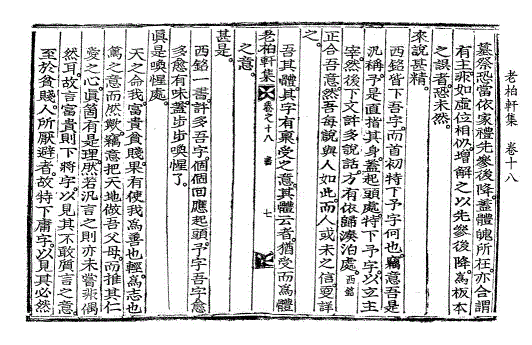 老柏軒集 卷十八
墓祭恐當依家禮先參後降。蓋體魄所在。亦合謂
有主。非如虛位相似。增解之以先參後降。爲板本
之誤者。恐未然。
來說甚精。
西銘皆下吾字。而首初特下予字何也。竊意吾是
汎稱。予是直指其身。蓋起頭處。特下予字。以立主
宰。然後下文許多說話。方有依歸湊泊處。西銘
正合吾意。然吾每說與人如此。而人或未之信。更詳
之。
吾其體。其字有裏受之意。其體云者。猶受而爲體
老柏軒集 卷之十八 書 七
之意。
甚是。
西銘一書。許多吾字。個個回應起頭予字。吾字愈
多。愈有味。蓋步步喚惺了。
眞是喚惺處。
天之命我富貴貧賤。果有使我爲善也輕。爲志也
篤之意。而厥繫竊意把天地做吾父母。而推其仁
愛之心。眞箇有是理。厥若汎言之。則亦未嘗非偶
然耳。故言富貴則下將字。以見其不敢質言之意。
至於貧賤。人所厭避者。故特下庸字。以見其必然